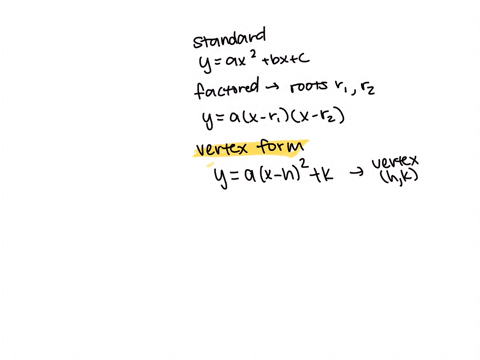 standard
y = ax² + bx + c
factored → roots r₁, r₂
y = a(x-r₁)(x-r₂)
vertex form
y = a(x-h)² + k → vertex (h,k)